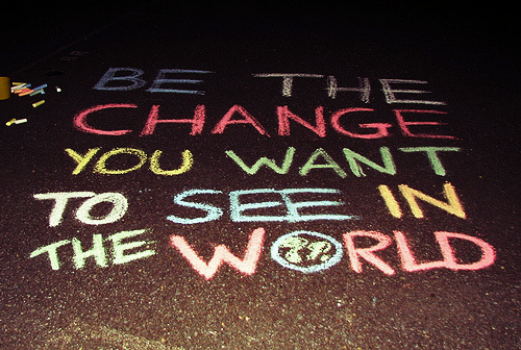 BE THE
CHANGE
YOU WANT
TO SEE IN
THE WORLD